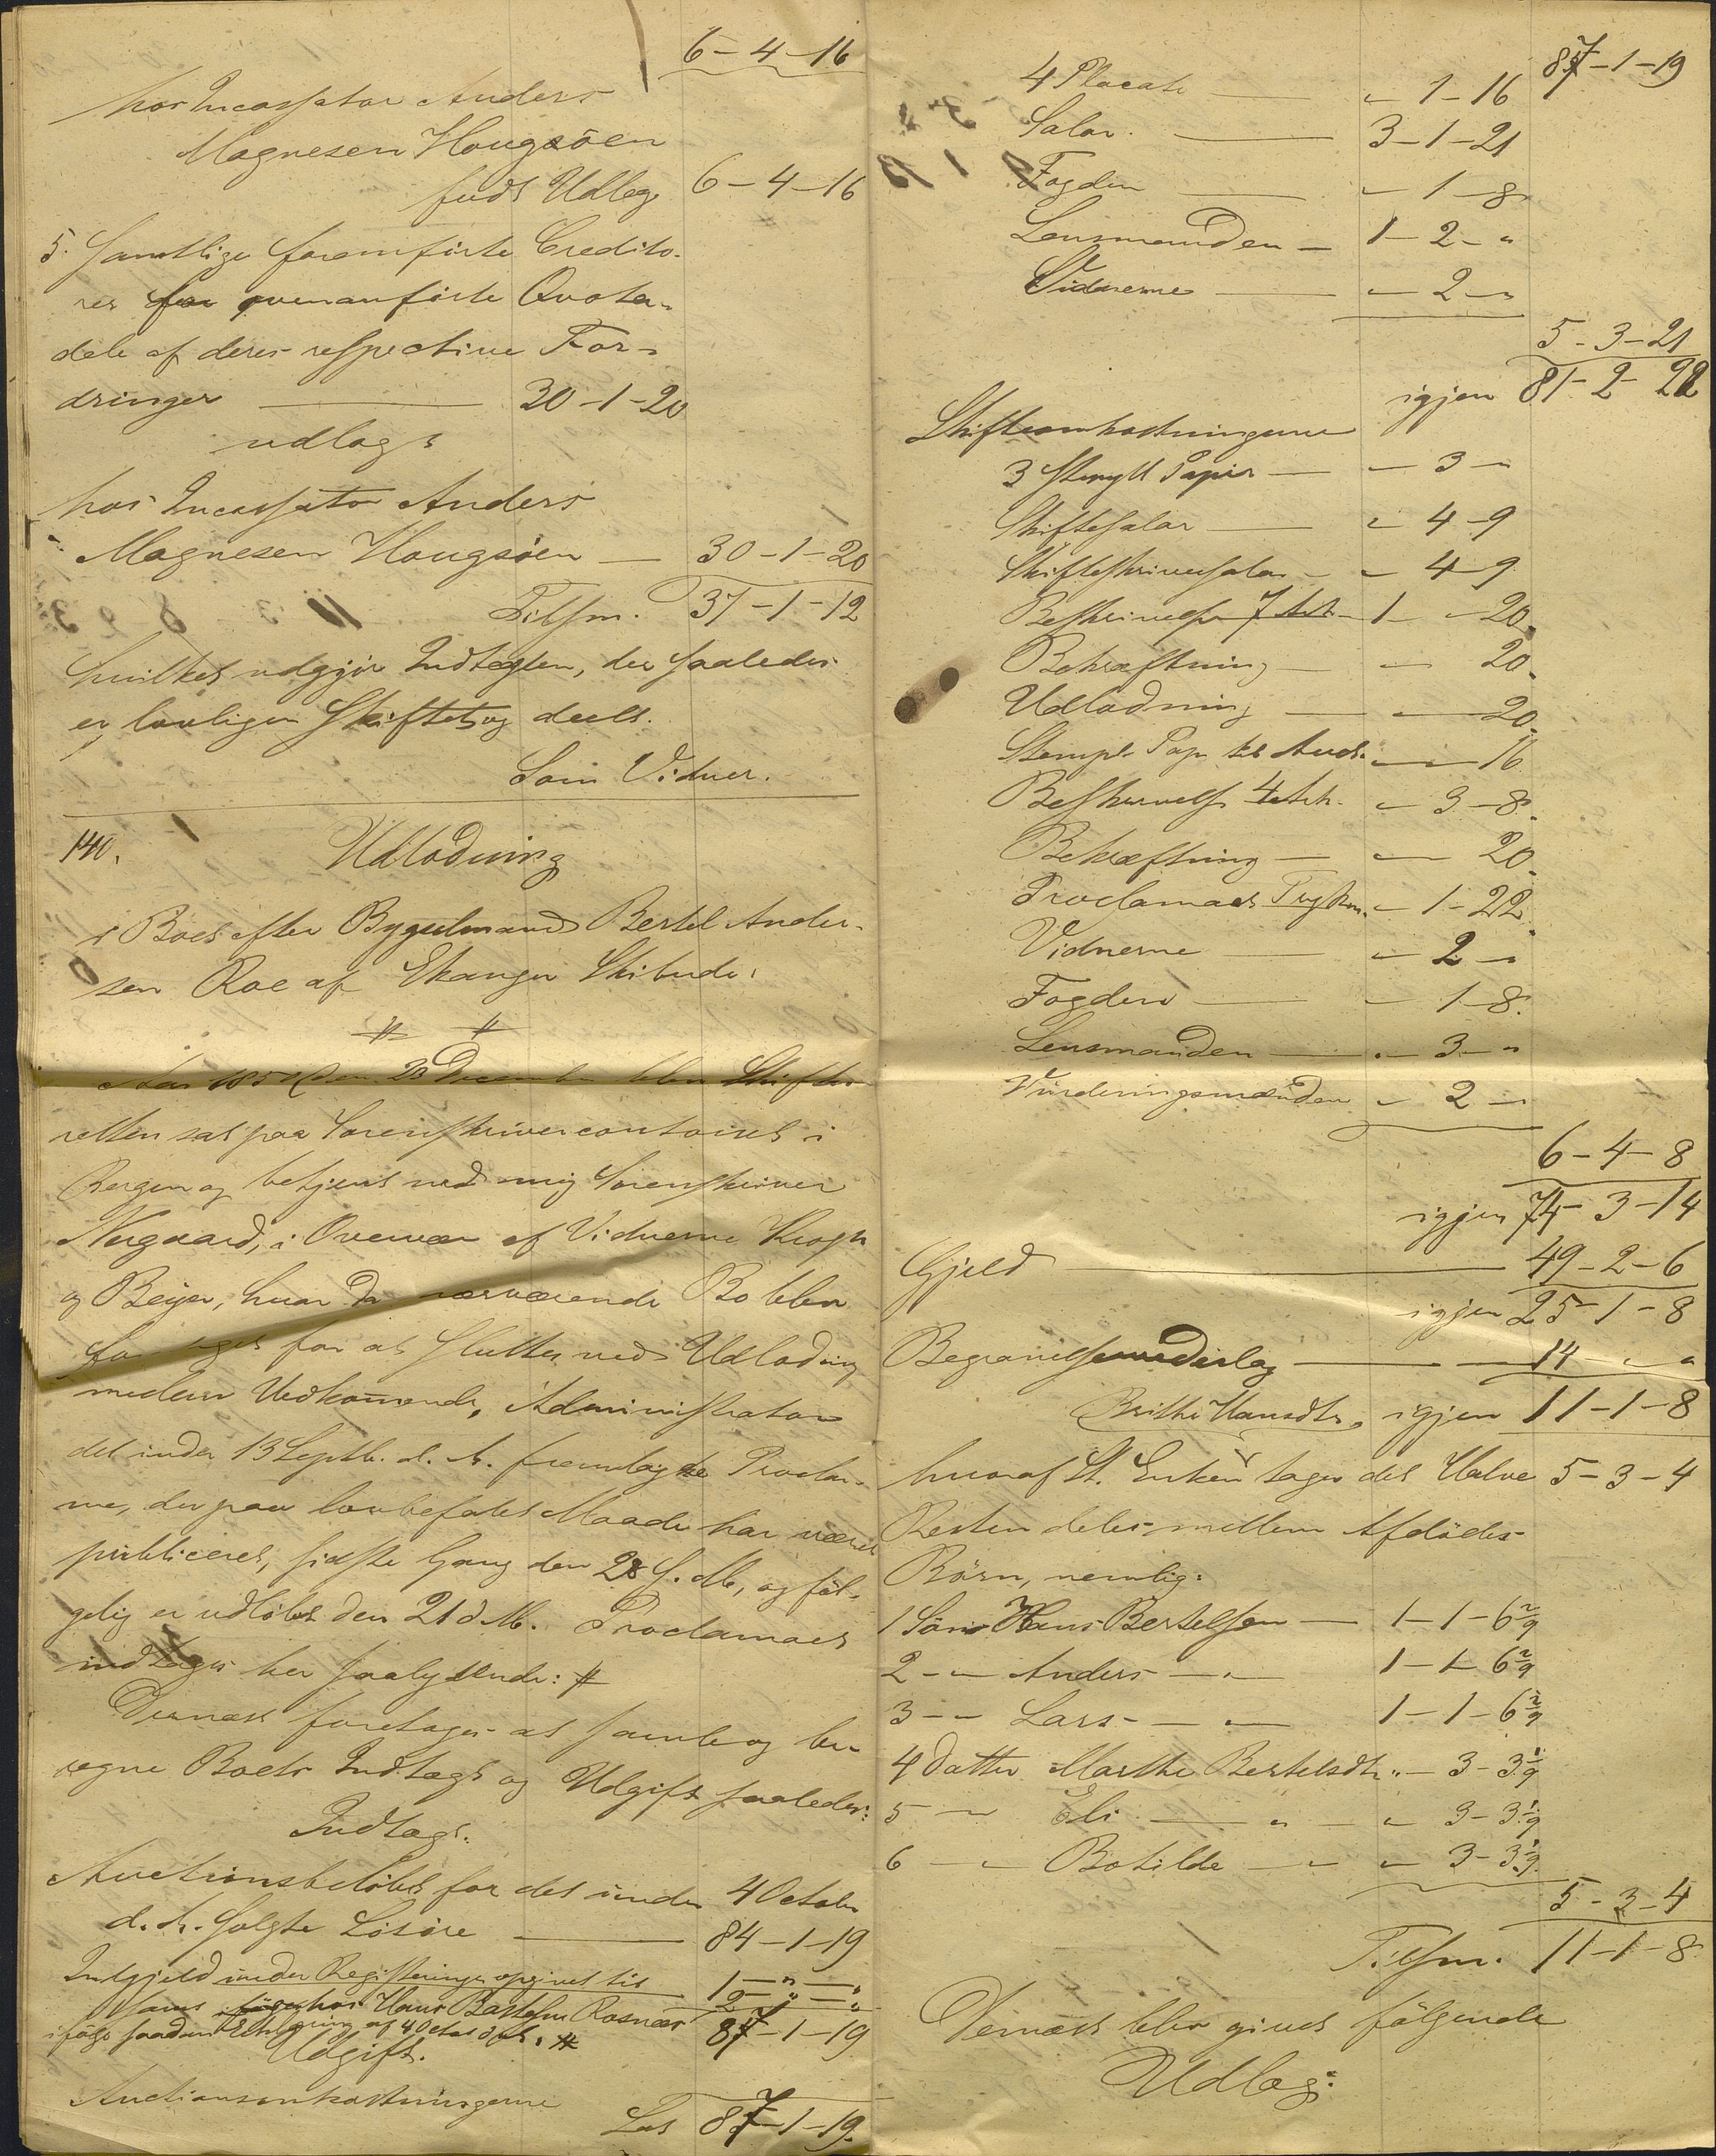 6 - 4 - 16
hos Incassator Anders
Magnesen Hougsöen
fuldt Udlæg 6 - 4 - 16
5. Samtlige foranførte Credito-
rer for ovenanførte Qvota-
dele af deres respective For-
dringer 30 - 1 - 20
udlagt
hos Incassator Anders
Magnesen Hougsöen — 30 - 1 - 20
Tilsm. 37 - 1 - 12
hvilket udgjør Indtægten, der saaledes
er lovligen Skiftet og deelt.
Som Vidner.
140. Udlodning
i Boet efter Bygselmand Bertel Ander-
sen Roe af Ekanger Skibrede.
Aar 185 den 23 December blev Skifte-
retten sat paa Sorenskrivercontoiret i
Bergen og betjent ved mig Sorenskriver
Norgaard, i Overvær af Vidnerne Krogh
og Beyer, hvor da nærværende Bo blev
foretaget for at sluttes ved Udlodning
mellem Vedkommende. Administrator
det under 13 Septb. d. A. fremlagde Procla-
ma, der paa lovbefalet Maade har været
publiceret, sidste Gang den 28 f. M., og føl-
gelig er udløbet den 21 d. M. Proclamaet
indtages her saalydende: #
Dernæst foretages at samle og be-
regne Boets Indtægt og Udgift saaledes:
Indtægt.
Auctionsbeløbet for det under 4 October
d. A. solgte Løsøre — 84 - 1 - 19
Indgjeld under Registeringen opgivet til 1 - " - "
Hans Bertelsen Rosnæs 2 - " - "
ifølge saadan af 4 October d. A. # 87 - 1 - 19
Udgift.
Auctionsomkostningerne
Lat 87 - 1 - 19.
87 - 1 - 19
4 Placate — " - 1 - 16
Salar. — 3 - 1 - 21
Fogden — " - 1 - 8
Lensmanden — 1 - 2 - "
Vidnerne — " - 2 - "
5 - 3 - 21
igjen 81 - 2 - 22
Skifteomkostningerne
3 Stemplt Papir — " - 3 - "
Skiftesalar — " - 4 - 9
Skifteskriversalar — " - 4 - 9
Beskrivelse 7 Ark — 1 - " - 20
Bekræftning — " - 20
Udlodning — " - 20
Stempl. Pap. til Auct. — " - 16
Beskrivelse 4 Ark. " - 3 - 8
Bekræftning — " - 20
Proclamaets Trykn. " - 1 - 22
Vidnerne — " - 2 - "
Fogden — " - 1 - 8
Lensmanden — " - 3 - "
Vurderingsmænden " - 2 - "
6 - 4 - 8
igjen 74 - 3 - 14
Gjeld — 49 - 2 - 6
igjen 25 - 1 - 8
Begravelsesudlæg — 14 - " - "
Brithe Hansdtr. igjen 11 - 1 - 8
hvoraf St. Enken tager det Halve 5 - 3 - 4
Resten deles mellem Afdødes
Börn, nemlig:
1 Søn Hans Bertelsen — 1 - 1 - 6 2/9
2 - " Anders — " 1 - 1 - 6 2/9
3 - " Lars — " 1 - 1 - 6 2/9
4 Datter Marthe Bertelsdtr. " - 3 - 3 1/9
5 — " Eli — " " - 3 - 3 1/9
6 — " Botilde — " " - 3 - 3 1/9
5 - 3 - 4
Tilsm. 11 - 1 - 8
Dernæst blev givet følgende
Udlæg: